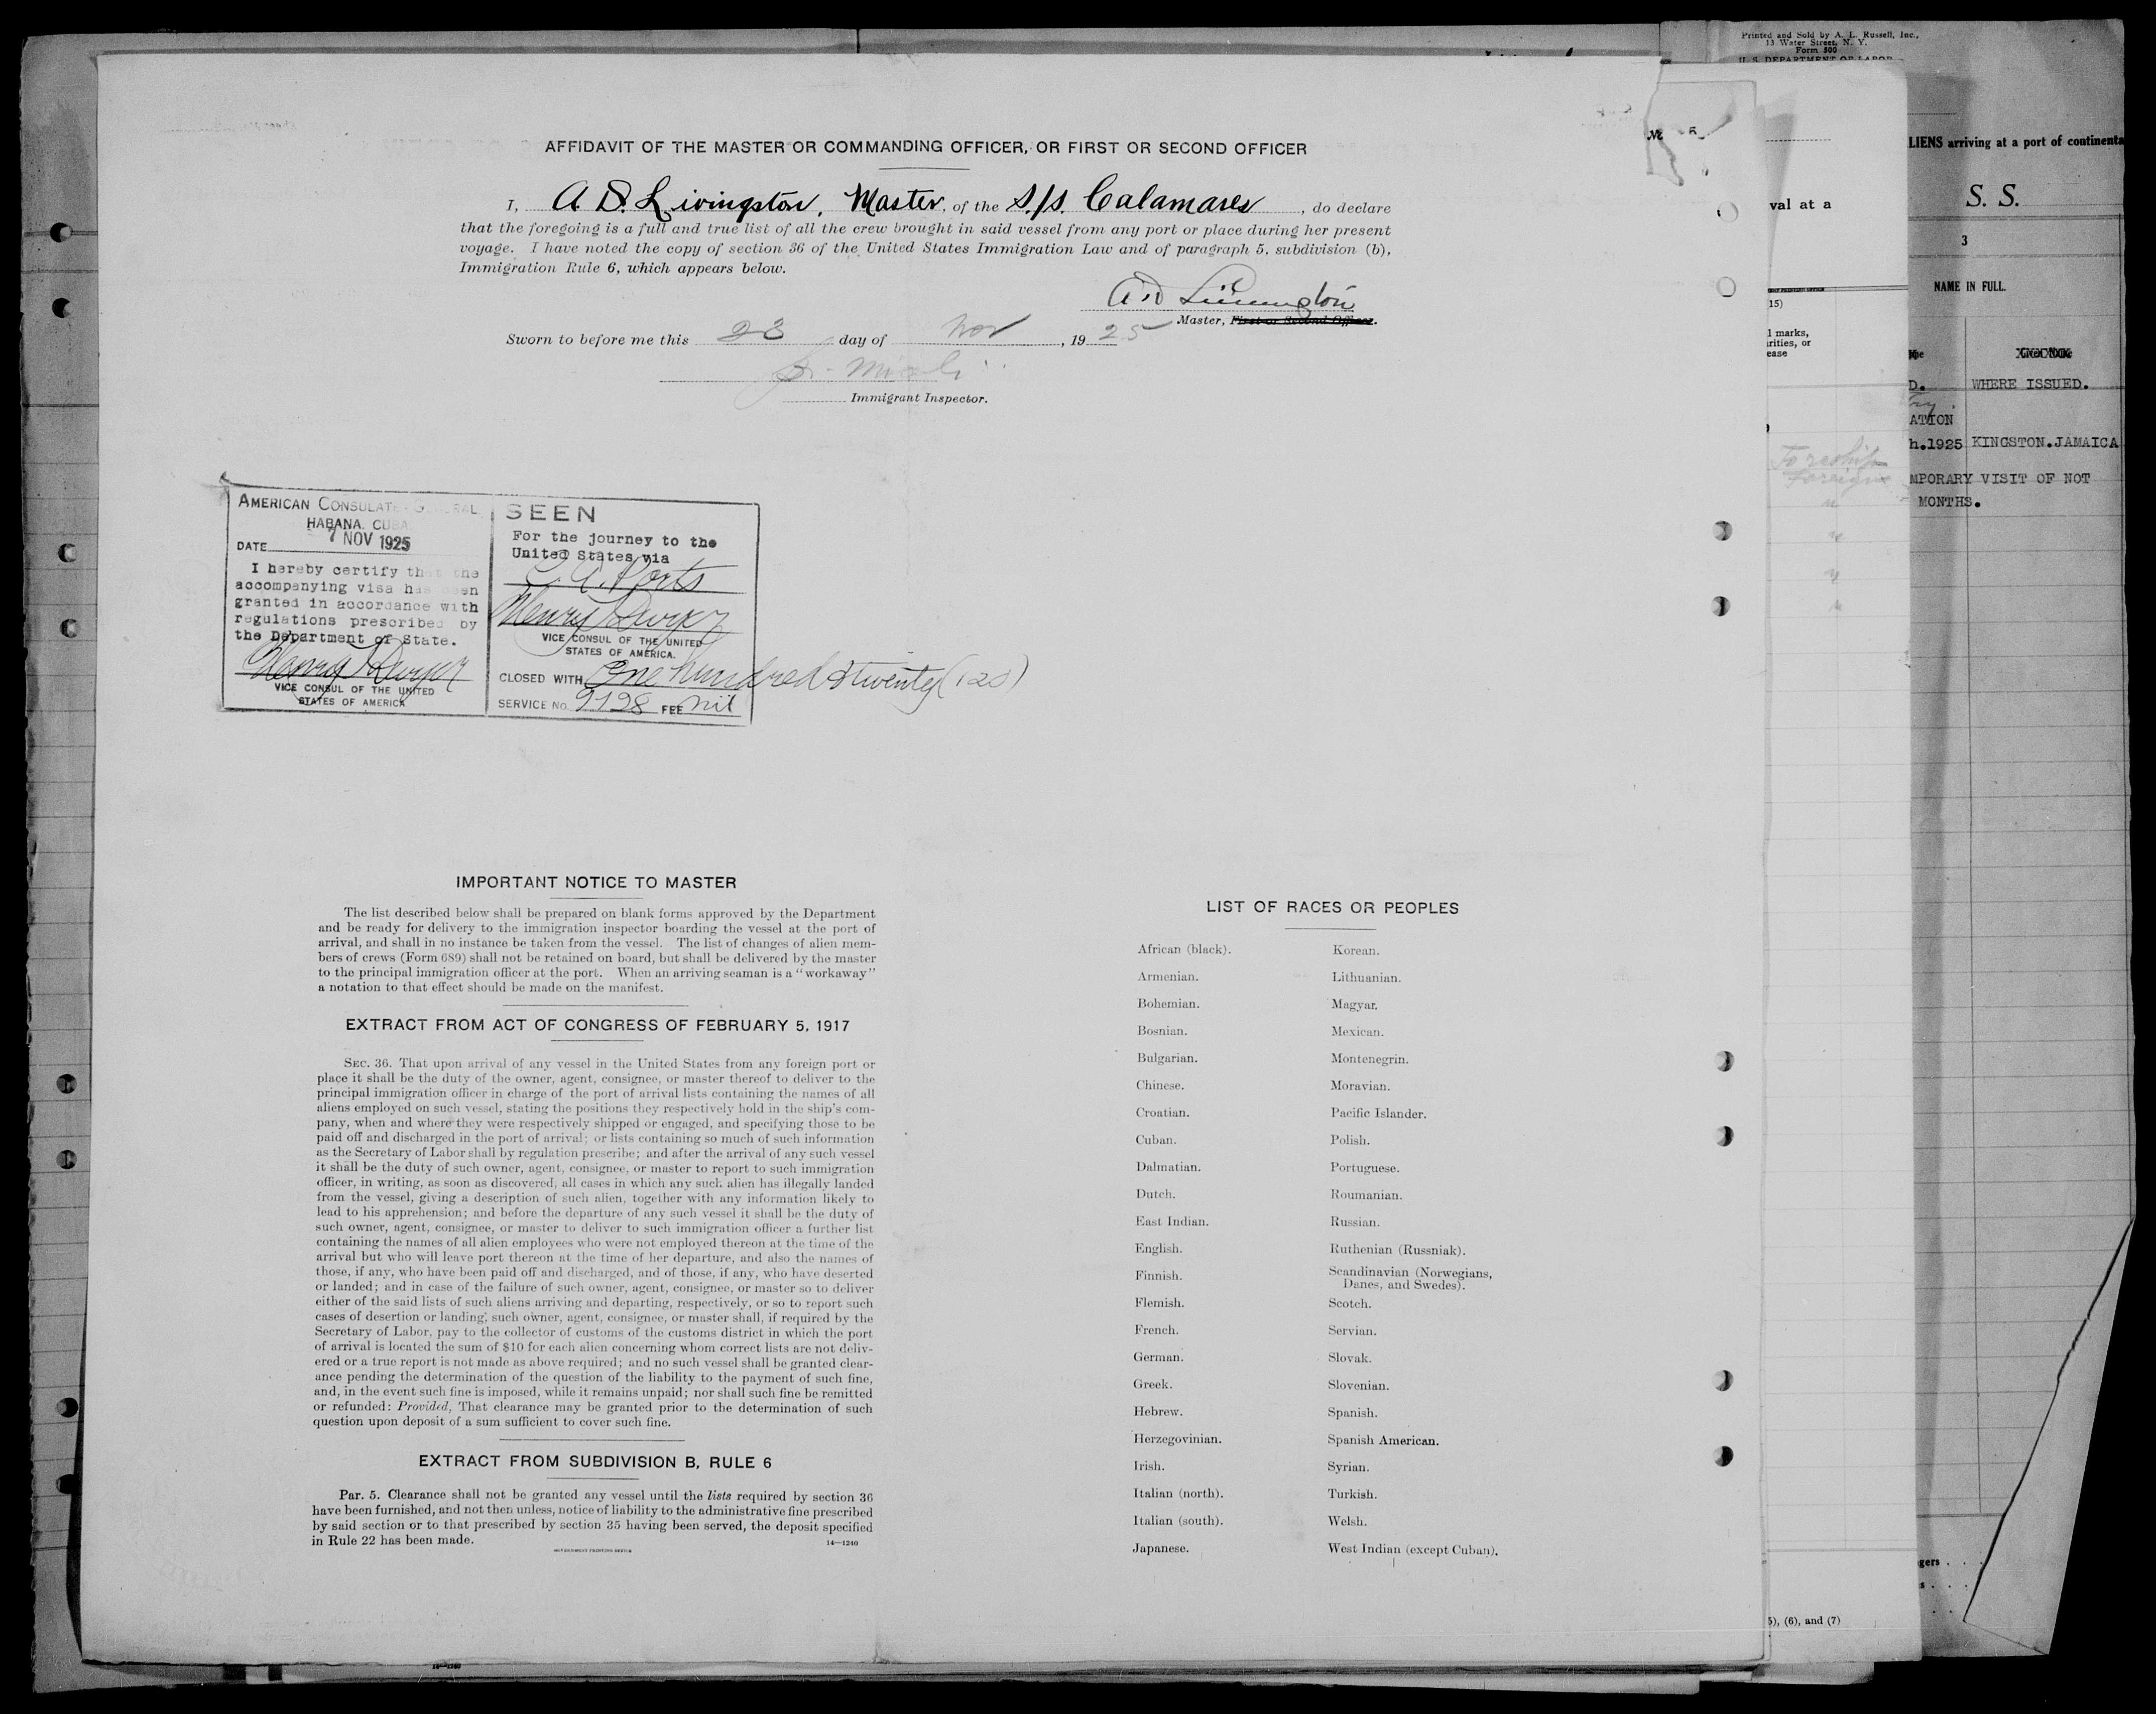 Printed and Sold by A. L. Russell, Inc.,
13 Water Street, N. Y.
Form 500
U. S. DEPARTMENT OF LABOR
AFFIDAVIT OF THE MASTER OR COMMANDING OFFICER, OR FIRST OR SECOND OFFICER
I, A. D. Livingston, Master, of the S/S. Calamares, do declare
that the foregoing is a full and true list of all the crew brought in said vessel from any port or place during her present
voyage. I have noted the copy of section 36 of the United States Immigration Law and of paragraph 5, subdivision (b),
Immigration Rule 6, which appears below.
A D Livingston
Master, First or Second Officer.
Sworn to before me this 23 day of Nov, 1925
Immigrant Inspector.
AMERICAN CONSULATE GENERAL
HABANA, CUBA
DATE 7 NOV 1925
I hereby certify that the
accompanying visa has been
granted in accordance with
regulations prescribed by
the Department of State.
VICE CONSUL OF THE UNITED
STATES OF AMERICA
SEEN
For the journey to the
United States via
C. A. Ports
VICE CONSUL OF THE UNITED
STATES OF AMERICA.
CLOSED WITH One hundred & twenty (120)
SERVICE NO. 9198 FEE nil
IMPORTANT NOTICE TO MASTER
The list described below shall be prepared on blank forms approved by the Department
and be ready for delivery to the immigration inspector boarding the vessel at the port of
arrival, and shall in no instance be taken from the vessel. The list of changes of alien mem-
bers of crews (Form 689) shall not be retained on board, but shall be delivered by the master
to the principal immigration officer at the port. When an arriving seaman is a "workaway"
a notation to that effect should be made on the manifest.
EXTRACT FROM ACT OF CONGRESS OF FEBRUARY 5, 1917
SEC. 36. That upon arrival of any vessel in the United States from any foreign port or
place it shall be the duty of the owner, agent, consignee, or master thereof to deliver to the
principal immigration officer in charge of the port of arrival lists containing the names of all
aliens employed on such vessel, stating the positions they respectively hold in the ship's com-
pany, when and where they were respectively shipped or engaged, and specifying those to be
paid off and discharged in the port of arrival; or lists containing so much of such information
as the Secretary of Labor shall by regulation prescribe; and after the arrival of any such vessel
it shall be the duty of such owner, agent, consignee, or master to report to such immigration
officer, in writing, as soon as discovered, all cases in which any such alien has illegally landed
from the vessel, giving a description of such alien, together with any information likely to
lead to his apprehension; and before the departure of any such vessel it shall be the duty of
such owner, agent, consignee, or master to deliver to such immigration officer a further list
containing the names of all alien employees who were not employed thereon at the time of the
arrival but who will leave port thereon at the time of her departure, and also the names of
those, if any, who have been paid off and discharged, and of those, if any, who have deserted
or landed; and in case of the failure of such owner, agent, consignee, or master so to deliver
either of the said lists of such aliens arriving and departing, respectively, or so to report such
cases of desertion or landing, such owner, agent, consignee, or master shall, if required by the
Secretary of Labor, pay to the collector of customs of the customs district in which the port
of arrival is located the sum of $10 for each alien concerning whom correct lists are not deliv-
ered or a true report is not made as above required; and no such vessel shall be granted clear-
ance pending the determination of the question of the liability to the payment of such fine,
and, in the event such fine is imposed, while it remains unpaid; nor shall such fine be remitted
or refunded: Provided, That clearance may be granted prior to the determination of such
question upon deposit of a sum sufficient to cover such fine.
EXTRACT FROM SUBDIVISION B, RULE 6
Par. 5. Clearance shall not be granted any vessel until the lists required by section 36
have been furnished, and not then unless, notice of liability to the administrative fine prescribed
by said section or to that prescribed by section 35 having been served, the deposit specified
in Rule 22 has been made.
14—1240
GOVERNMENT PRINTING OFFICE
LIST OF RACES OR PEOPLES
African (black). Korean.
Armenian. Lithuanian.
Bohemian. Magyar.
Bosnian. Mexican.
Bulgarian. Montenegrin.
Chinese. Moravian.
Croatian. Pacific Islander.
Cuban. Polish.
Dalmatian. Portuguese.
Dutch. Roumanian.
East Indian. Russian.
English. Ruthenian (Russniak).
Finnish. Scandinavian (Norwegians,
Danes, and Swedes).
Flemish. Scotch.
French. Servian.
German. Slovak.
Greek. Slovenian.
Hebrew. Spanish.
Herzegovinian. Spanish American.
Irish. Syrian.
Italian (north). Turkish.
Italian (south). Welsh.
Japanese. West Indian (except Cuban).
val at a
15)
l marks,
arities, or
ease
Foreign
5), (6), and (7)
LIENS arriving at a port of continenta
S. S.
3
NAME IN FULL.
D. WHERE ISSUED.
ATION
h.1925 KINGSTON.JAMAICA
MPORARY VISIT OF NOT
MONTHS.
gers
s